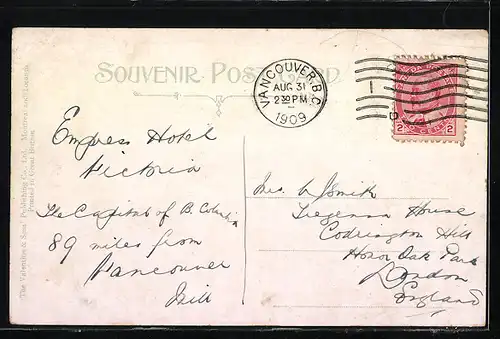 SOUVENIR POST CARD
VANCOUVER, B.C.
AUG 31
2 30 PM
1909
2 CENTS 2
The Valentine & Sons' Publishing Co., Ltd., Montreal and Toronto
Printed in Great Britain
Empress Hotel
Victoria
The Capital of B. Columbia
89 miles from
Vancouver
Will
Mrs. W Smith
House
Codrington Hill
Honor Oak Park
London
England